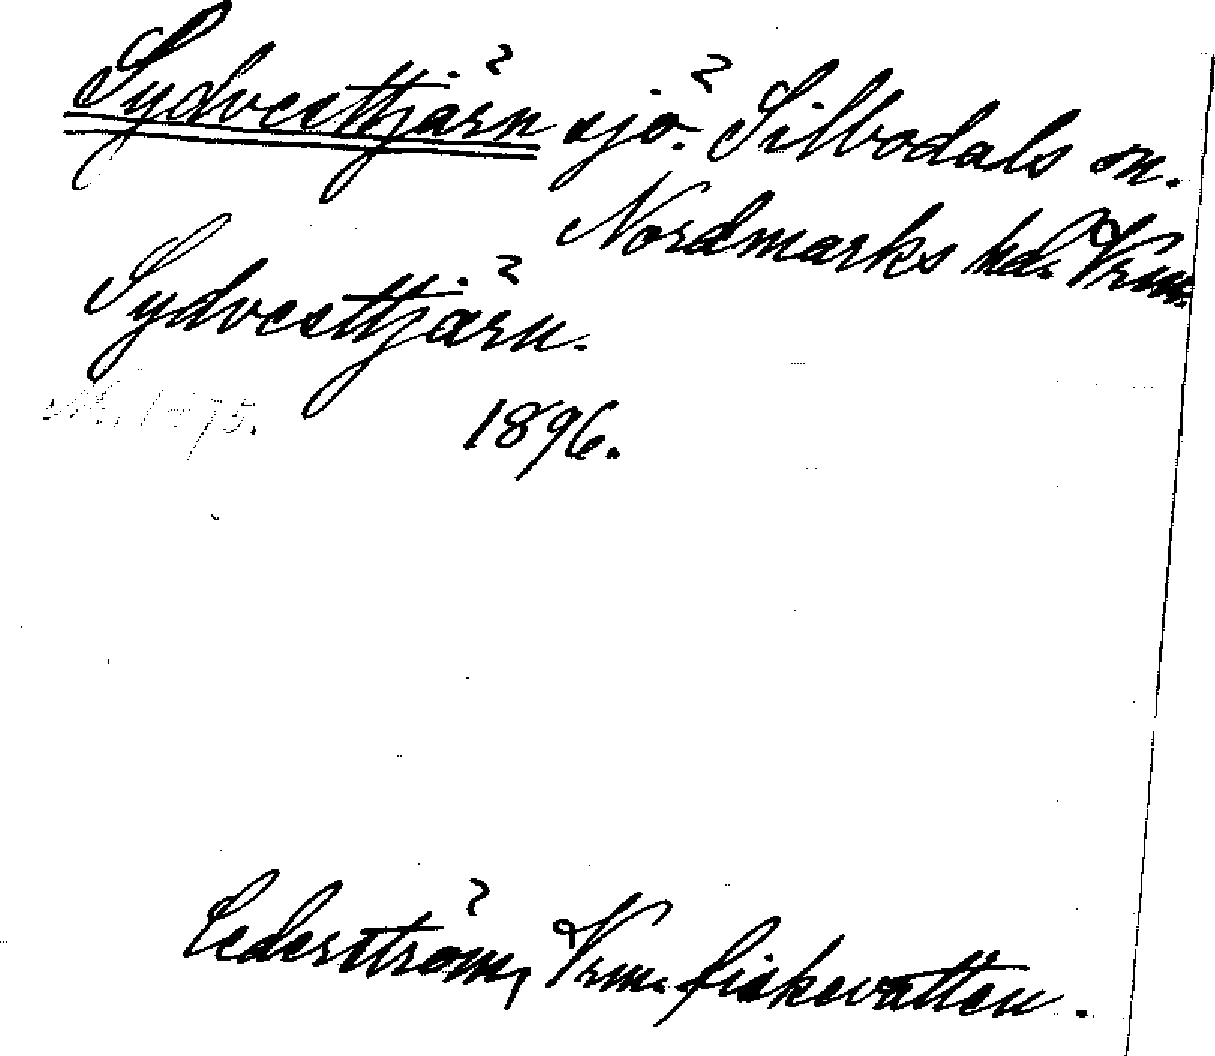 Sydvesttjärn sjö. Silbodals sn.
Nordmarks hd. Vrm.
Sydvesttjärn.
1896.
Cederström, Vrm. fiskevatten.